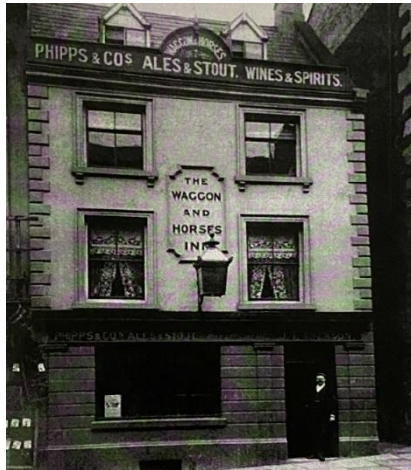 WAGGON & HORSES
PHIPPS & COS ALES & STOUT. WINES & SPIRITS.
THE
WAGGON
AND
HORSES
INN
PHIPPS & COS ALES & STOUT